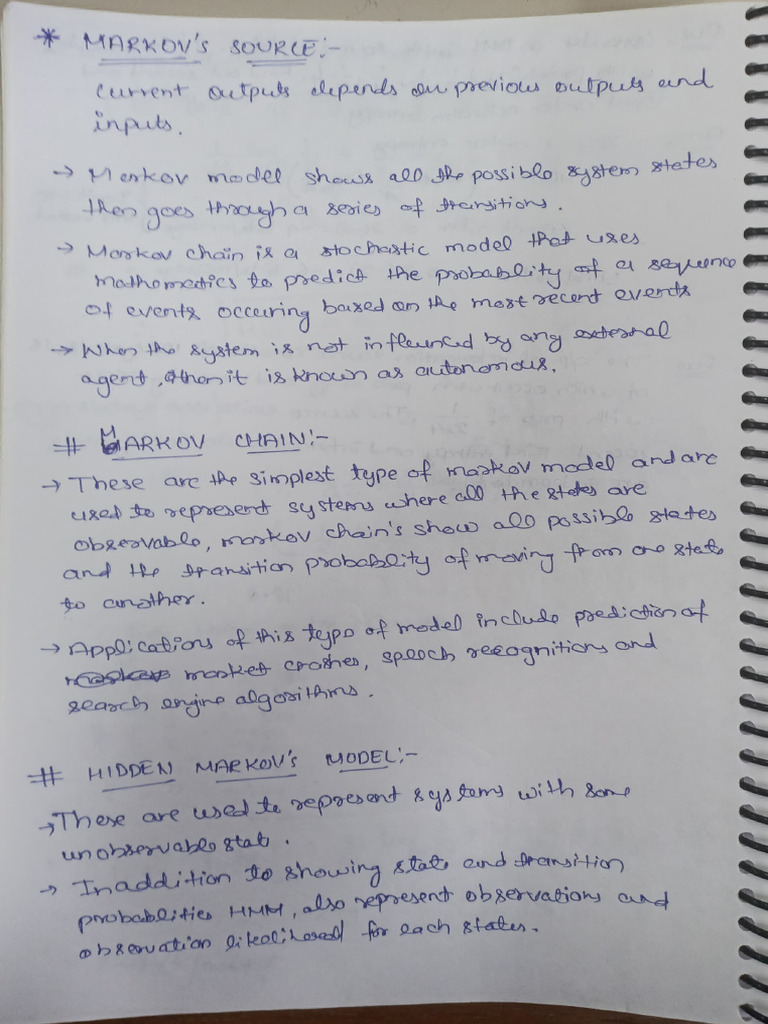 * MARKOV'S SOURCE:-
Current outputs depends on previous outputs and
inputs.
→ Markov model shows all the possible system states
then goes through a series of transitions.
→ Markov chain is a stochastic model that uses
mathematics to predict the probablity of a sequence
of events occuring based on the most recent events
→ When the system is not influenced by any external
agent, then it is known as autonomous.
# MARKOV CHAIN:-
→ These are the simplest type of markov model and are
used to represent systems where all the states are
observable, markov chain's show all possible states
and the transition probablity of moving from one state
to another.
→ Applications of this type of model include prediction of
market crashes, speech recognitions and
search engine algorithms.
# HIDDEN MARKOV'S MODEL:-
→ These are used to represent systems with some
unobservable stat.
→ In addition to showing state and transition
probablities HMM, also represent observations and
observation likelihood for each states.